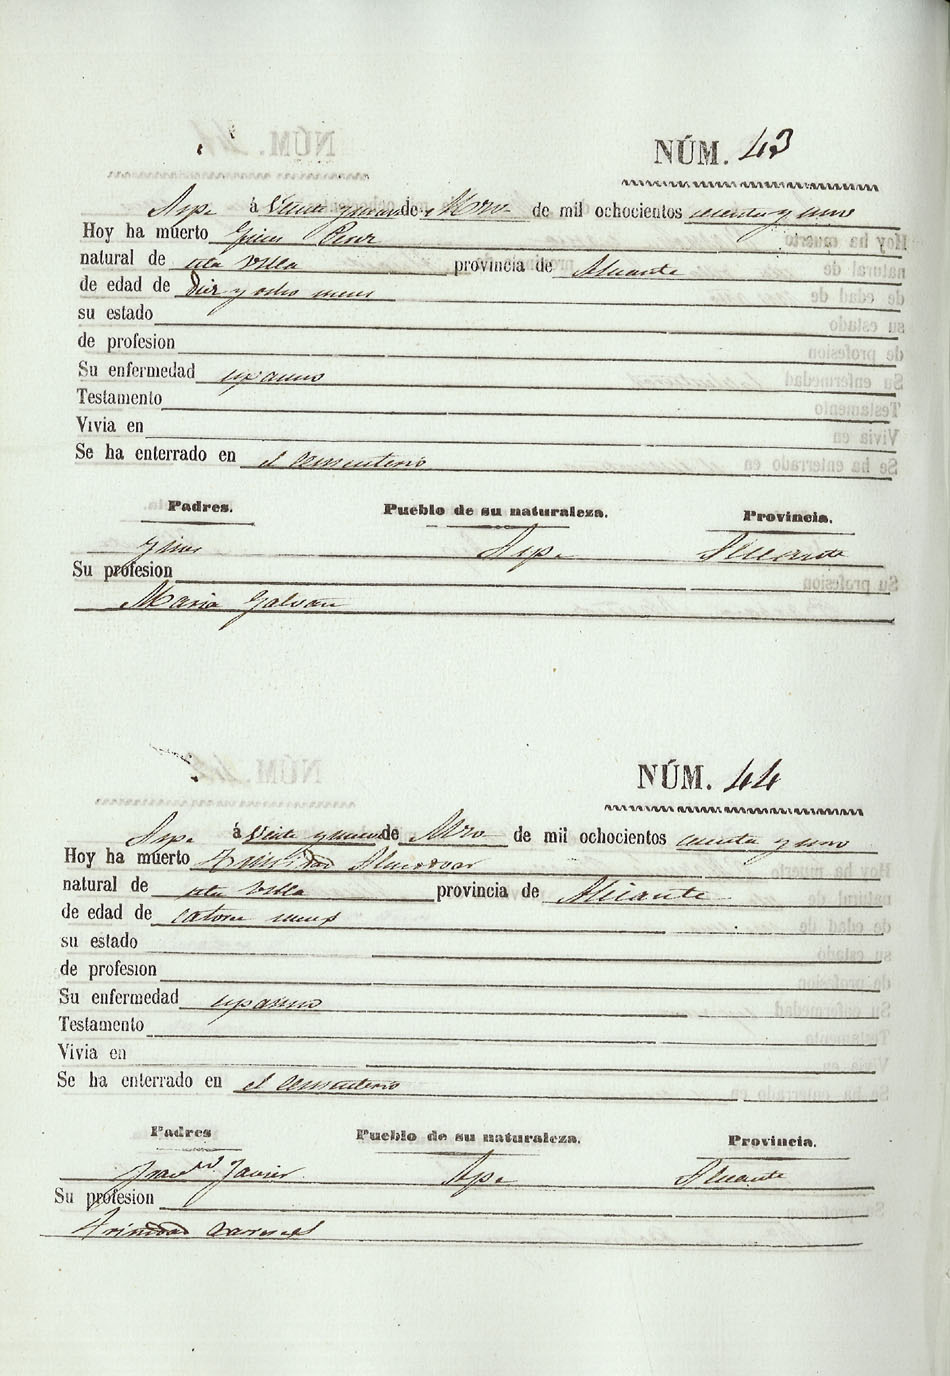 NÚM. 43
Aspe á Veinte y nueve de Mzo de mil ochocientos cuenta y uno
Hoy ha muerto Gines Perez
natural de esta Villa provincia de Alicante
de edad de Diez y ocho meses
su estado
de profesion
Su enfermedad espasmo
Testamento
Vivia en
Se ha enterrado en el Cementerio
Padres. Pueblo de su naturaleza. Provincia.
Gines Aspe Alicante
Su profesion
Maria Galvañ
NÚM. 44
Aspe á Veinte y nueve de Mzo de mil ochocientos cuenta y uno
Hoy ha muerto Trinidad Almodovar
natural de esta Villa provincia de Alicante
de edad de catorce meses
su estado
de profesion
Su enfermedad espasmo
Testamento
Vivia en
Se ha enterrado en el Cementerio
Padres Pueblo de su naturaleza. Provincia.
Javier Aspe Alicante
Su profesion
Trinidad